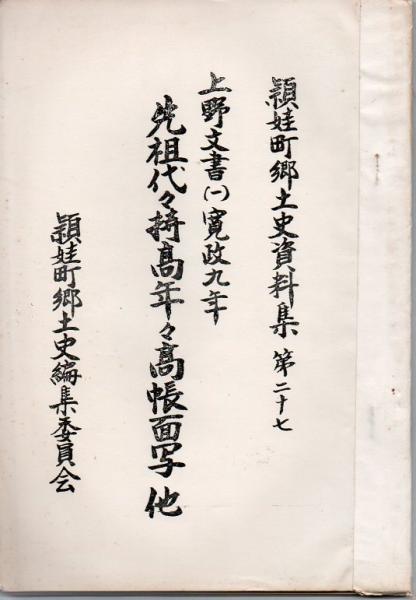 頴娃町郷土史資料集 第二十七
上野文書(一)寛政九年
先祖代々持高年々高帳面写 他
頴娃町郷土史編集委員会